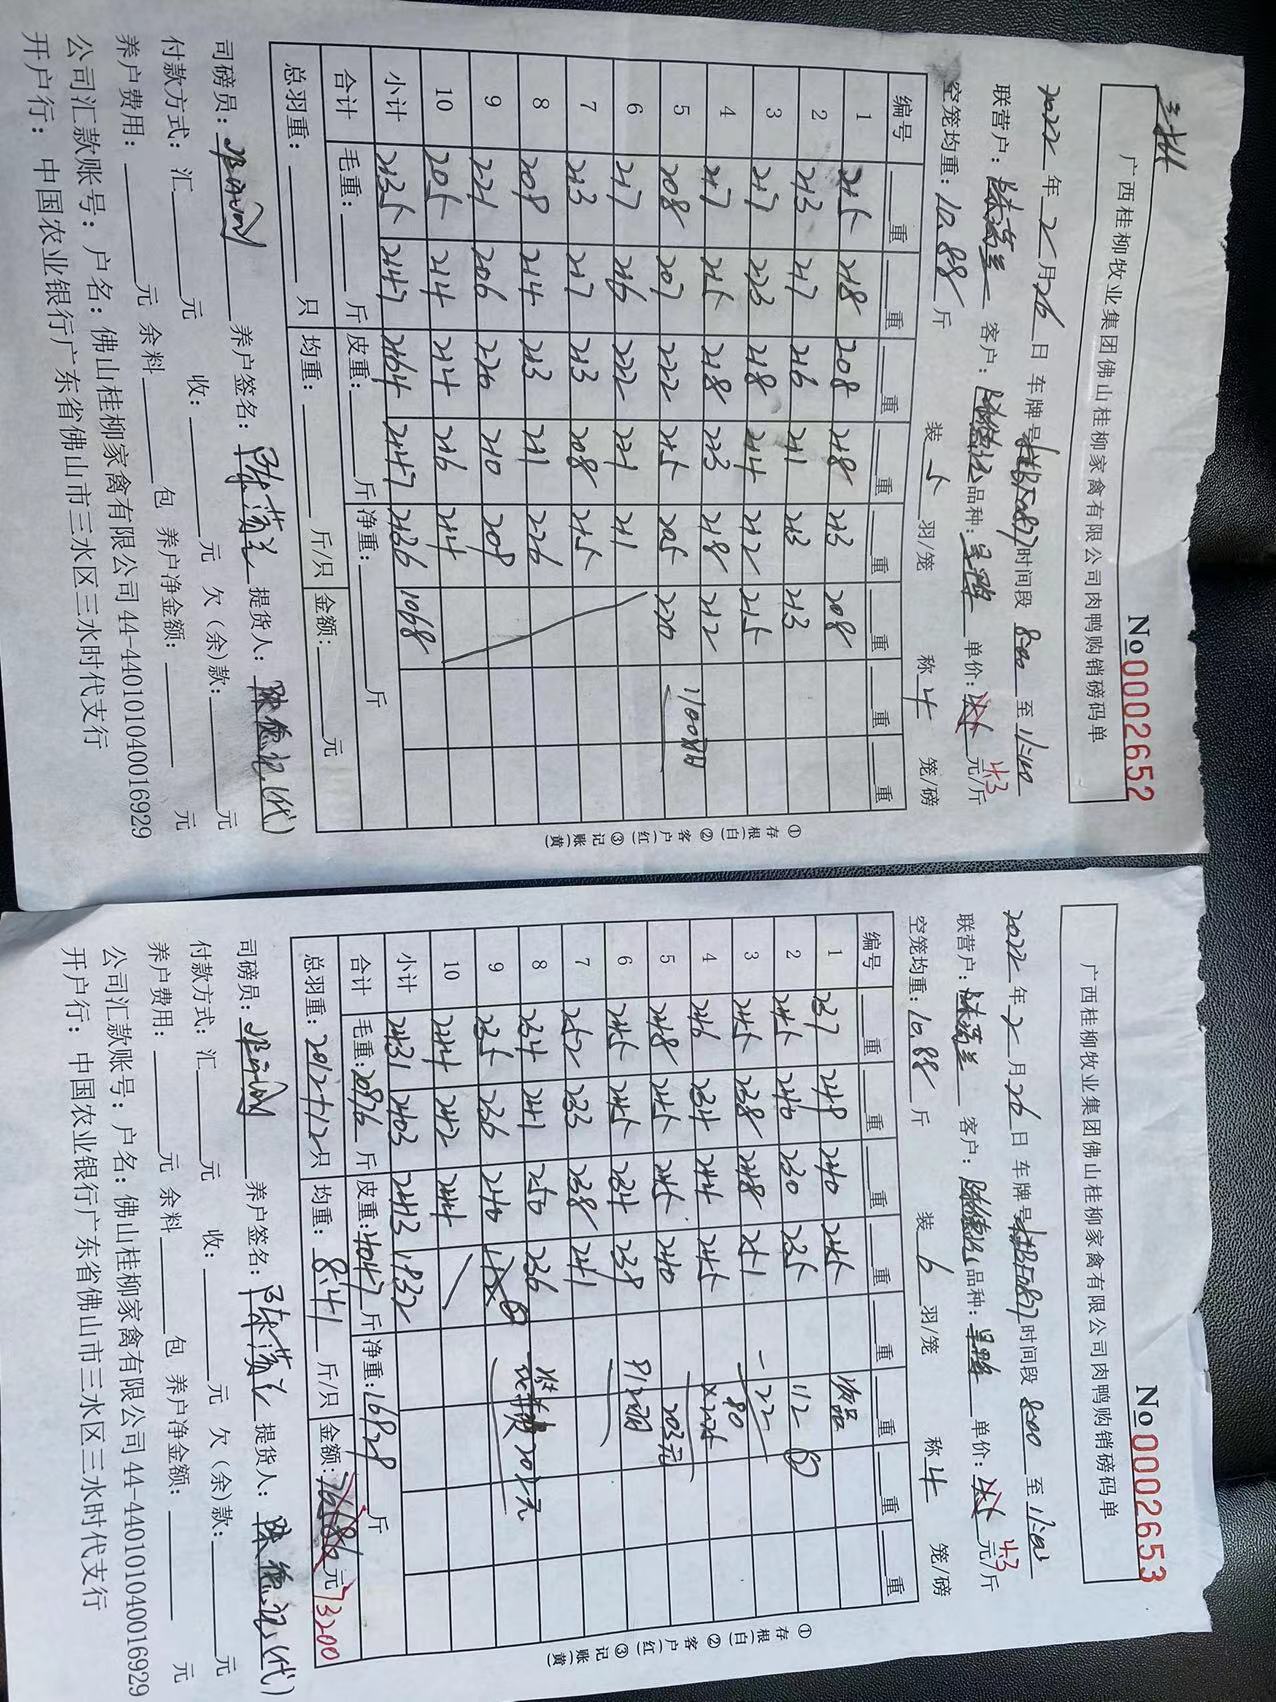 三联
广西桂柳牧业集团佛山桂柳家禽有限公司肉鸭购销磅码单
No 0002652
2022 年 2 月 26 日 车牌号 时间段 8:00 至 11:00
联营户: 客户: 品种: 单价: 4.3 元/斤
空笼均重: 10.88 斤 装 5 羽/笼 称 4 笼/磅
编号 重 重 重 重 重 重 重 重
1 215 218 208 218 213 208
2 213 217 216 211 213 213
3 217 223 218 214 212 215
4 217 215 218 223 218 212
5 208 207 222 215 205 220 1100羽
6 217 216 222 221 211
7 213 217 213 208 215
8 209 214 213 211 226
9 221 206 220 210 209
10 205 214 214 216 214
小计 2135 2147 2164 2147 2136 1068
合计 毛重: 斤 皮重: 斤 净重: 斤
总羽重: 只 均重: 斤/只 金额: 元
司磅员: 养户签名: 提货人: 陈德记(代)
付款方式: 汇 元 收: 元 欠(余)款: 元
养户费用: 元 余料 包 养户净金额: 元
公司汇款账号: 户名: 佛山桂柳家禽有限公司44-440101040016929
开户行: 中国农业银行广东省佛山市三水区三水时代支行
①存根(白)②客户(红)③记账(黄)
广西桂柳牧业集团佛山桂柳家禽有限公司肉鸭购销磅码单
No 0002653
2022 年 2 月 26 日 车牌号 时间段 8:00 至 11:00
联营户: 客户: 品种: 单价: 4.3 元/斤
空笼均重: 10.88 斤 装 6 羽/笼 称 4 笼/磅
编号 重 重 重 重 重 重 重 重
1 237 249 240 245 次品
2 245 240 230 235 112
3 245 238 248 251 -22
4 246 234 244 245 80
5 248 245 245 240 203元
6 245 245 234 239 912羽
7 252 233 238 241
8 234 241 250 236
9 235 236 240
10 244 242 244
小计 2431 2403 2413 1932
合计 毛重: 20976 斤 皮重: 4047 斤 净重: 16929 斤
总羽重: 2012+12 只 均重: 8.41 斤/只 金额: 元 73200
司磅员: 养户签名: 提货人: 陈德记(代)
付款方式: 汇 元 收: 元 欠(余)款: 元
养户费用: 元 余料 包 养户净金额: 元
公司汇款账号: 户名: 佛山桂柳家禽有限公司44-440101040016929
开户行: 中国农业银行广东省佛山市三水区三水时代支行
①存根(白)②客户(红)③记账(黄)